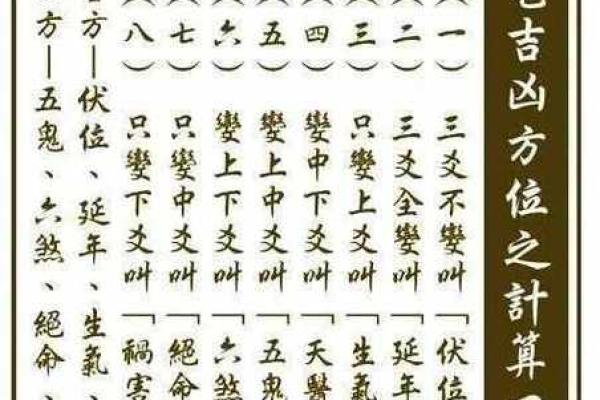 吉凶方位之計算
(一)三爻不變叫「伏位
(二)三爻全變叫「延年
(三)只變上爻叫「生氣
(四)變中下爻叫「天醫
(五)變上中爻叫「五鬼
(六)變上下爻叫「六煞
(七)只變中爻叫「絕命
(八)只變下爻叫「禍害
方—伏位、延年、生氣、
方—五鬼、六煞、絕命、